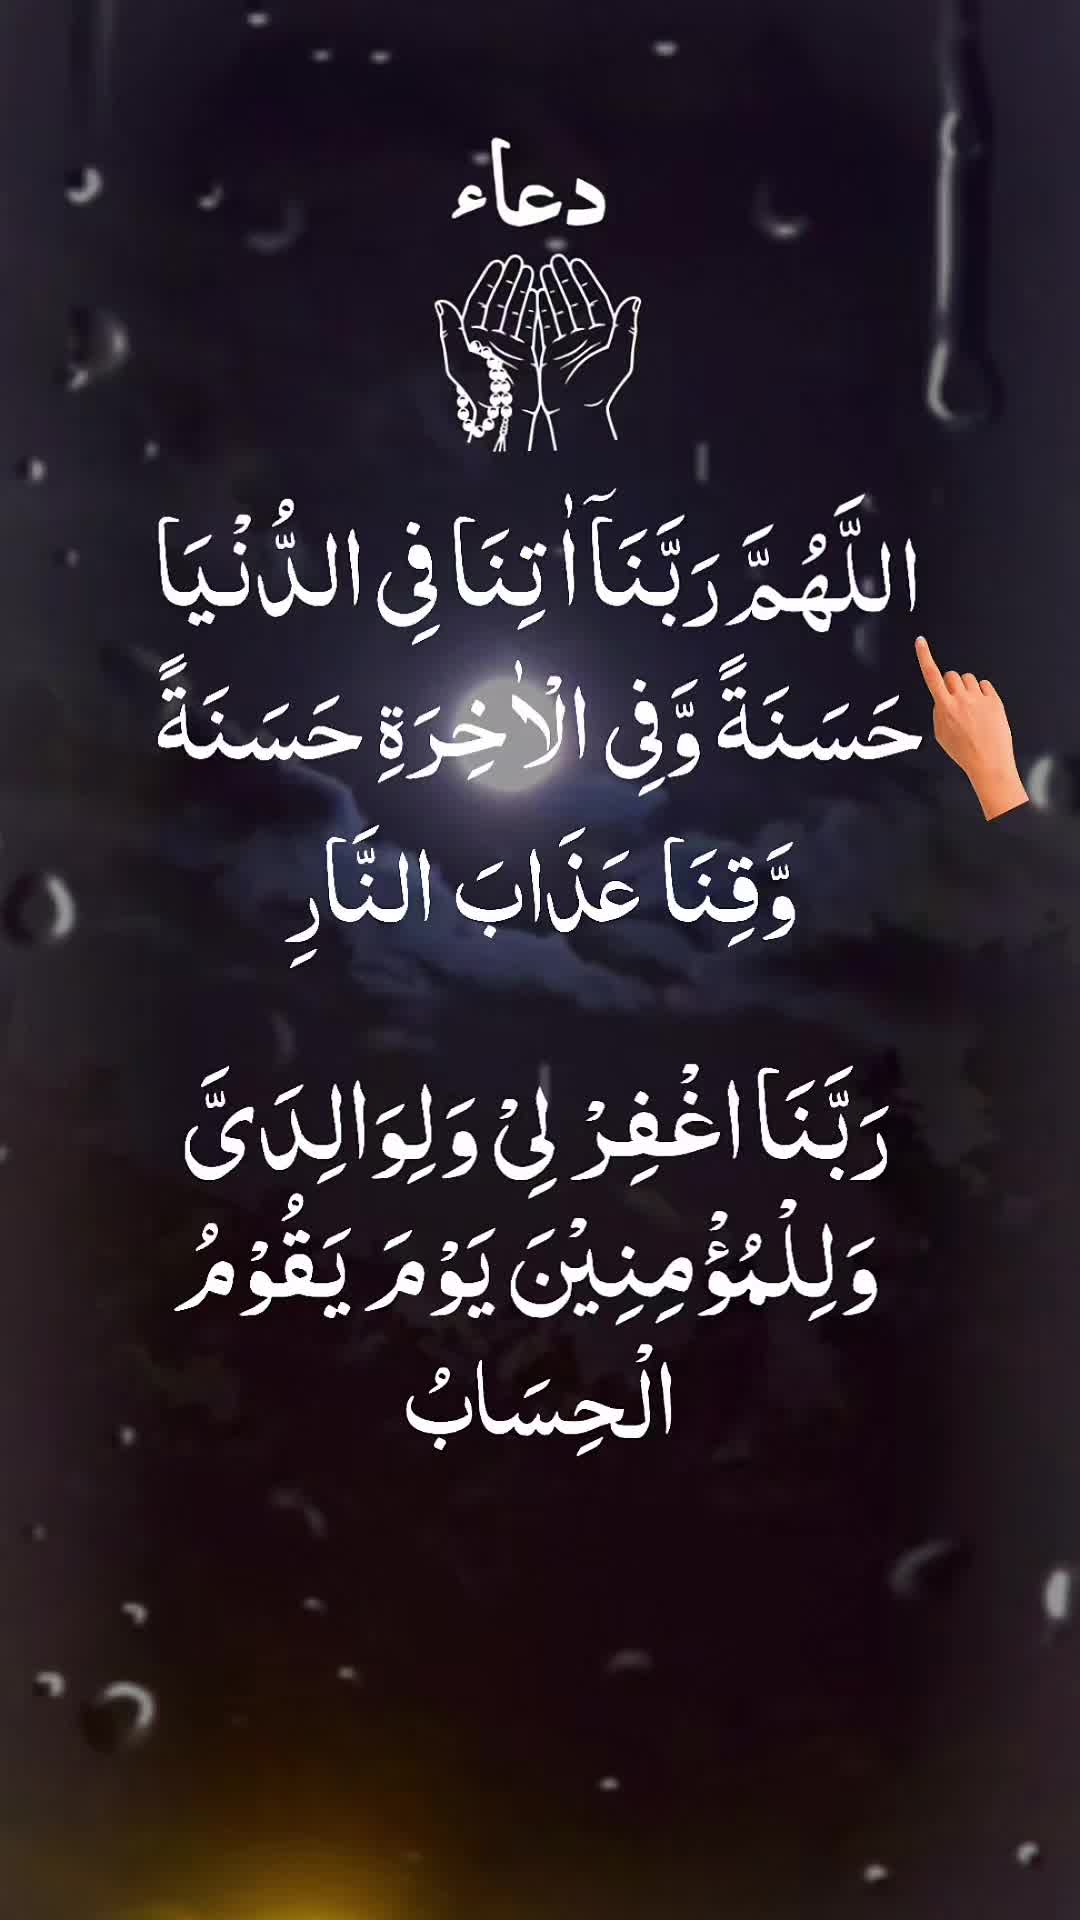 دعاء
اللَّهُمَّ رَبَّنَآ اٰتِنَا فِى الدُّنْيَا
حَسَنَةً وَّفِى الْاٰخِرَةِ حَسَنَةً
وَّقِنَا عَذَابَ النَّارِ
رَبَّنَا اغْفِرْ لِىْ وَلِوَالِدَىَّ
وَلِلْمُؤْمِنِيْنَ يَوْمَ يَقُوْمُ
الْحِسَابُ